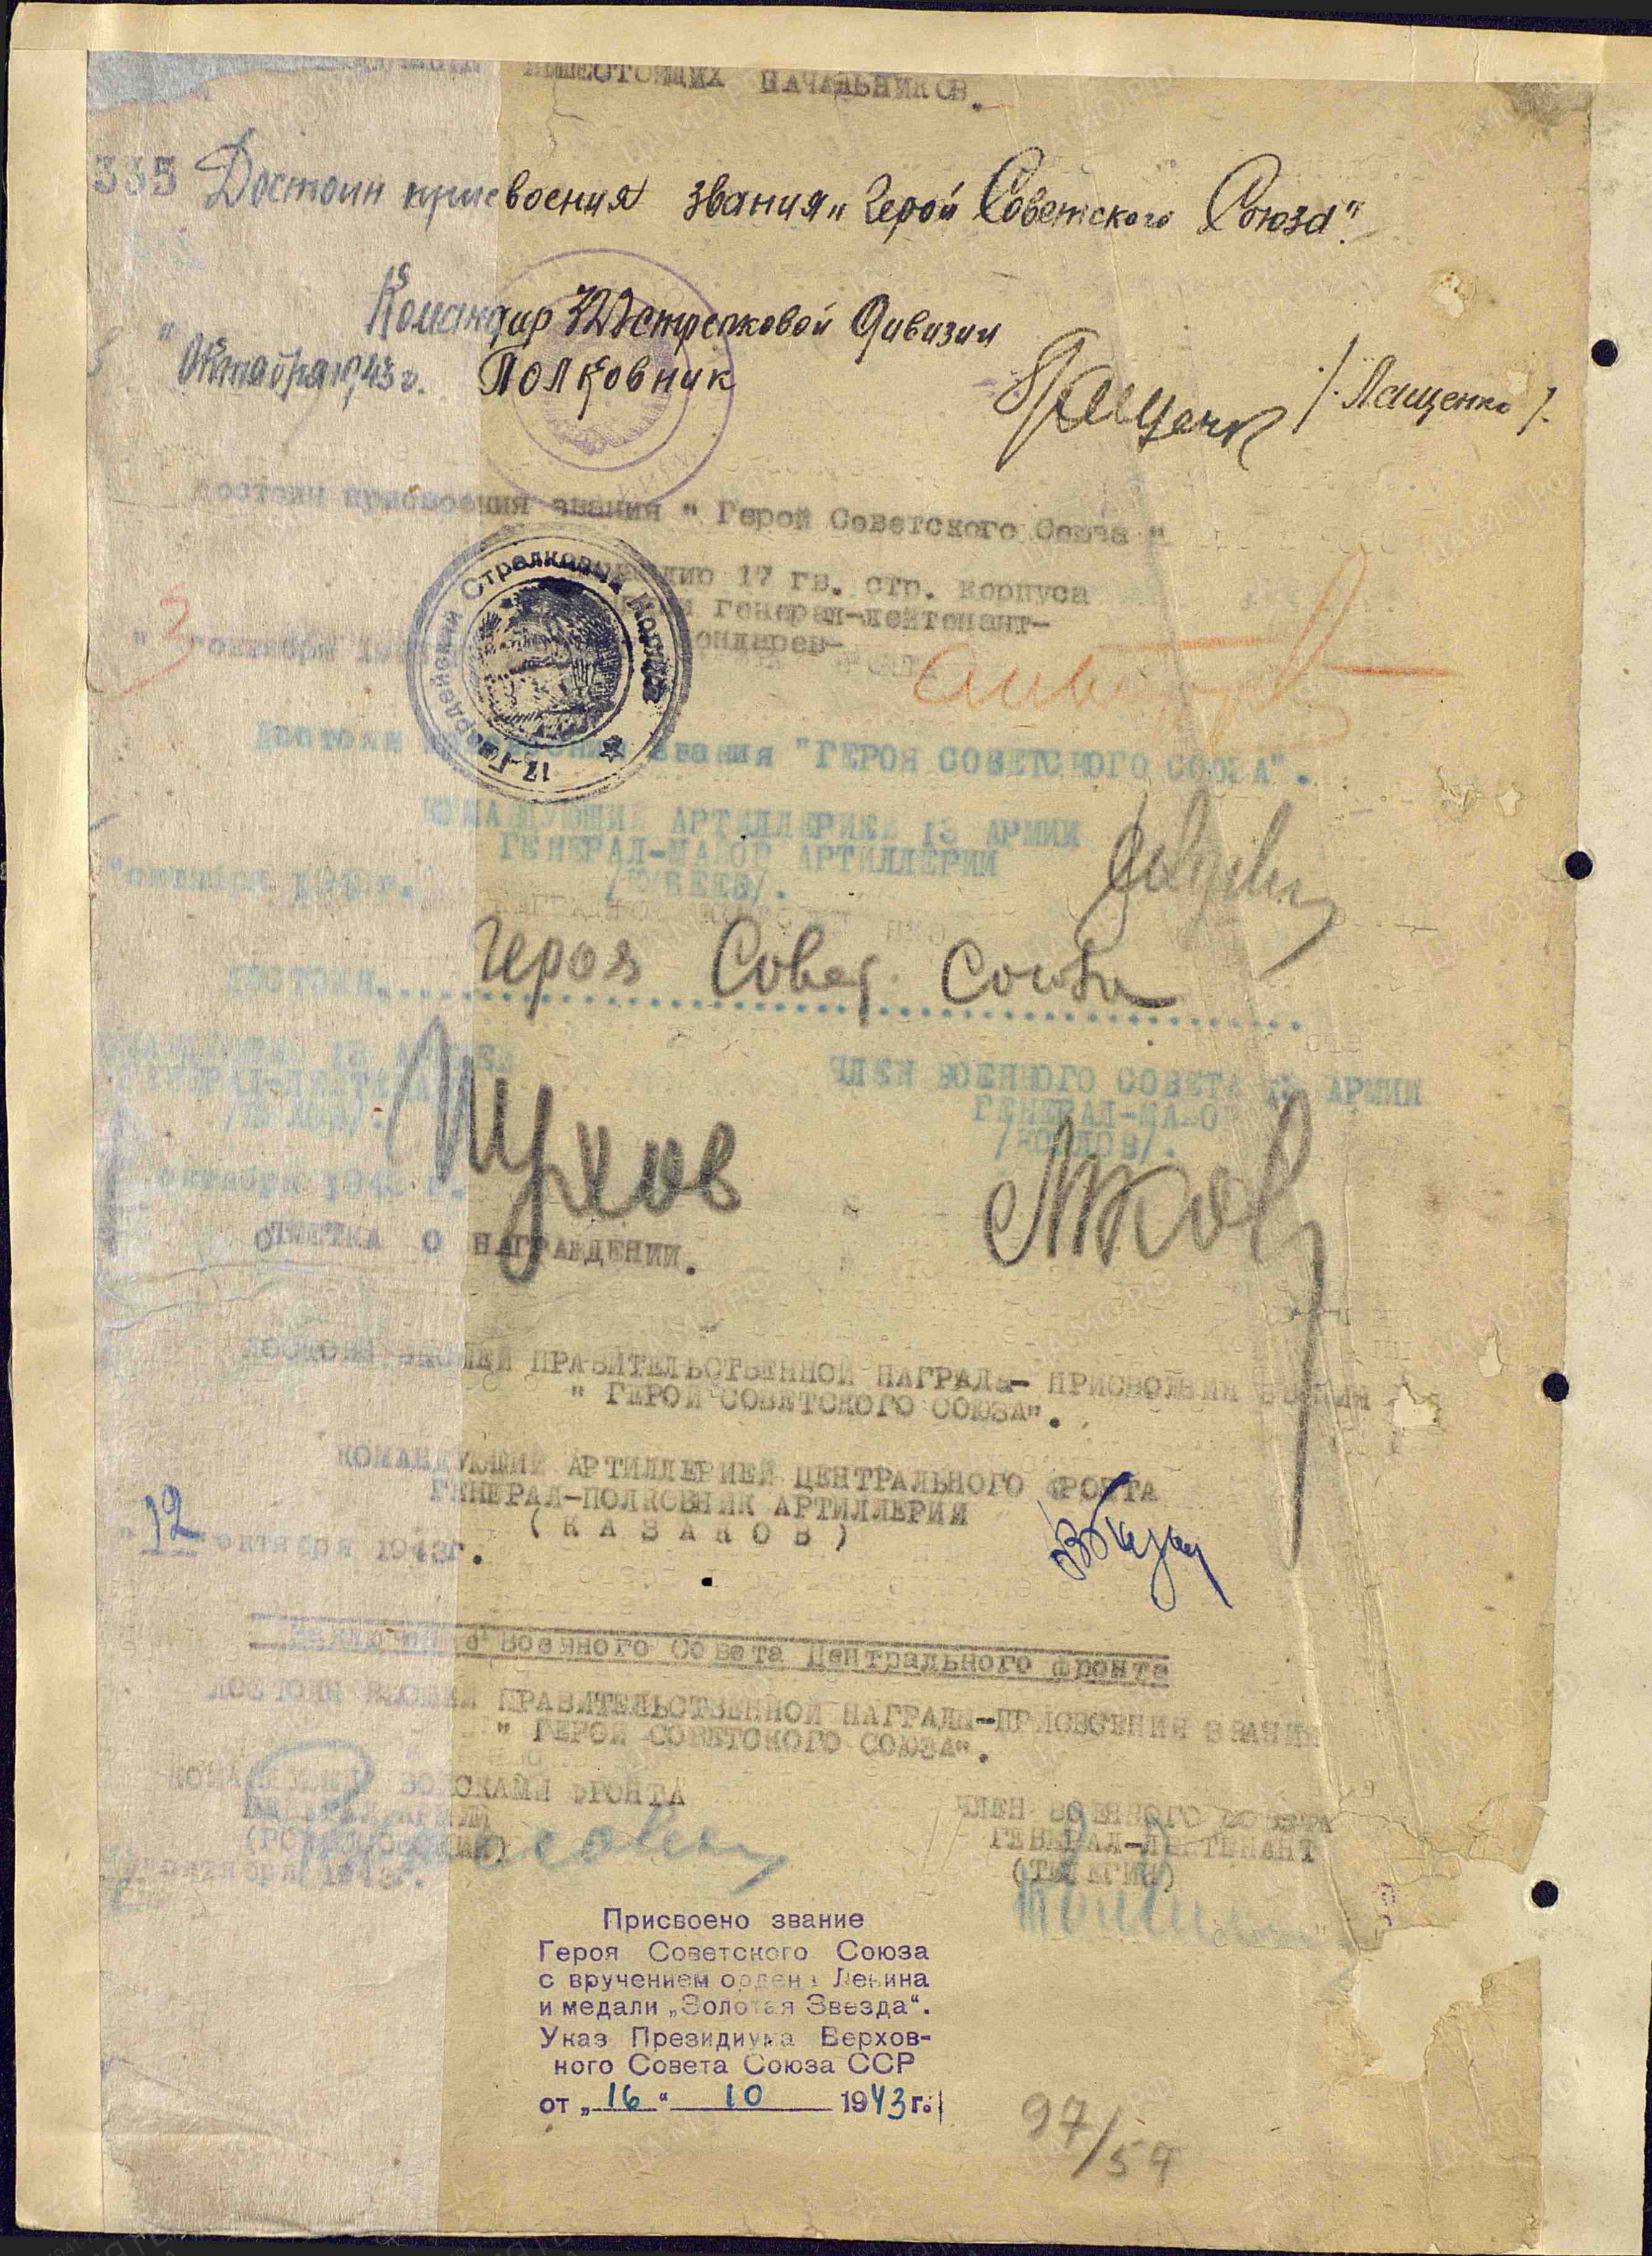 ВЫШЕСТОЯЩИХ НАЧАЛЬНИКОВ.
335 Достоин присвоения звания „Герой Советского Союза".
Командир 322 стрелковой дивизии
" Октября 1943 г. Полковник /Лащенко/.
Достоин присвоения звания " Герой Советского Союза "
17 гв. стр. корпуса
генерал-лейтенант-
Бондарев-
" 3 " октября
17-Гвардейский Стрелковый Корпус
Достоин присвоения звания "ГЕРОЯ СОВЕТСКОГО СОЮЗА".
КОМАНДУЮЩИЙ АРТИЛЛЕРИЕЙ 13 АРМИИ
ГЕНЕРАЛ-МАЙОР АРТИЛЛЕРИИ
"октября 1943г.
ДОСТОИН.... Героя Совет. Союза
КОМАНДУЮЩИЙ 13 АРМИЕЙ
ЧЛЕН ВОЕННОГО СОВЕТА 13 АРМИИ
ГЕНЕРАЛ-ЛЕЙТЕНАНТ
ГЕНЕРАЛ-МАЙОР
/ПУХОВ/.
/КОЗЛОВ/.
Пухов
октября 1943 г.
ОТМЕТКА О НАГРАЖДЕНИИ.
ДОСТОИН ВЫСШЕЙ ПРАВИТЕЛЬСТВЕННОЙ НАГРАДЫ- ПРИСВОЕНИЯ ЗВАНИЯ
" ГЕРОЙ СОВЕТСКОГО СОЮЗА".
КОМАНДУЮЩИЙ АРТИЛЛЕРИЕЙ ЦЕНТРАЛЬНОГО ФРОНТА
ГЕНЕРАЛ-ПОЛКОВНИК АРТИЛЛЕРИИ
( К А З А К О В )
" 12 " октября 1943г.
Заключение Военного Совета Центрального фронта
ДОСТОИН ВЫСШЕЙ ПРАВИТЕЛЬСТВЕННОЙ НАГРАДЫ-ПРИСВОЕНИЯ ЗВАНИЯ
" ГЕРОЙ СОВЕТСКОГО СОЮЗА".
КОМАНДУЮЩИЙ ВОЙСКАМИ ФРОНТА
ЧЛЕН ВОЕННОГО СОВЕТА
ГЕНЕРАЛ АРМИИ
ГЕНЕРАЛ-ЛЕЙТЕНАНТ
(РОКОССОВСКИЙ)
(ТЕЛЕГИН)
октября 1943г.
Присвоено звание
Героя Советского Союза
с вручением ордена Ленина
и медали „Золотая Звезда“.
Указ Президиума Верхов-
ного Совета Союза ССР
от „16“ 10 1943 г.
97/59